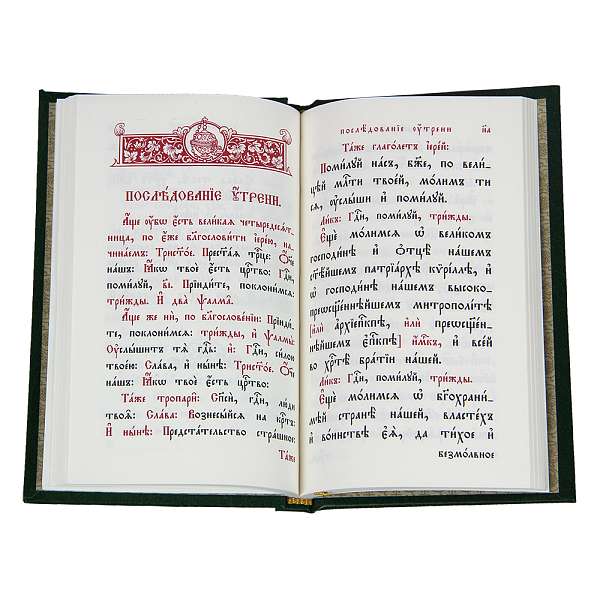 Послѣ́дованїе ᲂу҆́трени.
А҆́ще ᲂу҆́бѡ є҆́сть вели́каѧ четыредесѧ́т-
ница, по є҆́же бл҃гослови́ти і҆ере́ю, на-
чина́емъ: Трист҃о́е. Прест҃а́ѧ трⷪ҇це: Ѻ҆́ч҃е
на́шъ: Ꙗ҆́кѡ твоѐ є҆́сть црⷭ҇тво: Гдⷭ҇и,
поми́лꙋй, в҃і. Прїиди́те, поклони́мсѧ:
три́жды. И҆ два̀ ѱалма̑.
А҆́ще же нѝ, по бл҃гослове́нїи: Прїиди́-
те, поклони́мсѧ: три́жды, и҆ ѱалмы̀:
Оу҆слы́шитъ тѧ̀ гдⷭ҇ь: и҆: Гдⷭ҇и, си́лою
твое́ю: Сла́ва, и҆ ны́нѣ: Трист҃о́е. Ѻ҆́ч҃е
на́шъ: Ꙗ҆́кѡ твоѐ є҆́сть црⷭ҇тво:
Та́же тропарѝ: Сп҃сѝ, гдⷭ҇и, лю́ди
твоѧ̑: Сла́ва: Вознесы́йсѧ на крⷭ҇тъ:
И҆ ны́нѣ: Предста́тельство стра́шное:
Та́же
послѣ́дованїе ᲂу҆́трени н҃а
Та́же глаго́летъ і҆ере́й:
Поми́лꙋй на́съ, бж҃е, по вели́-
цѣй млⷭ҇ти твое́й, мо́лимъ ти
сѧ, ᲂу҆слы́ши и҆ поми́лꙋй.
Ли́къ: Гдⷭ҇и, поми́лꙋй, три́жды.
Є҆щѐ мо́лимсѧ ѡ҆ вели́комъ
господи́нѣ и҆ ѻ҆тцѣ̀ на́шемъ
ст҃ѣ́йшемъ патрїа́рхѣ кѷрі́ллѣ, и҆
ѡ҆ господи́нѣ на́шемъ высоко-
преѡсщ҃е́ннѣйшемъ митрополі́тѣ
[и҆лѝ а҆рхїепⷭ҇кпѣ, и҆лѝ преѡсщ҃е́н-
нѣйшемъ є҆пⷭ҇кпѣ] и҆́мⷬ҇къ, и҆ все́й
во хрⷭ҇тѣ̀ бра́тїи на́шей.
Ли́къ: Гдⷭ҇и, поми́лꙋй, три́жды.
Є҆щѐ мо́лимсѧ ѡ҆ бг҃охрани́-
мѣй странѣ̀ на́шей, власте́хъ
и҆ во́инствѣ є҆ѧ̀, да ти́хое и҆
безмо́лвное